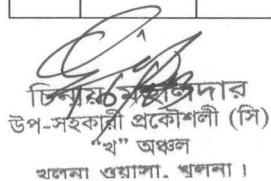 চিন্ময় মন্ডলদার
উপ-সহকারী প্রকৌশলী (সি)
"খ" অঞ্চল
খুলনা ওয়াসা, খুলনা।